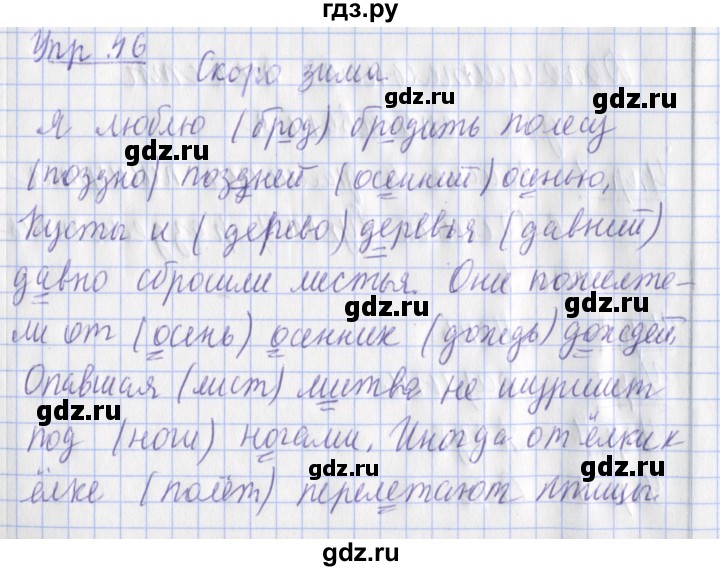 гдз.ру
Упр. 46
Скоро зима.
gdz.ru
gdz.ru
Я люблю (брод) бродить полесу
gdz.ru
gdz.ru
(поздно) поздней (осенний) осенью,
gdz.ru
Кусты и (дерево) деревья (давний)
gdz.ru
давно сбросили листья. Они пожелте-
gdz.ru
gdz.ru
ли от (осень) осенних (дождь) дождей.
Опавшая (лист) листва не шуршит
gdz.ru
gdz.ru
под (ноги) ногами. Иногда от ёлки к
gdz.ru
ёлке (полёт) перелетают птицы.
gdz.ru
gdz.ru